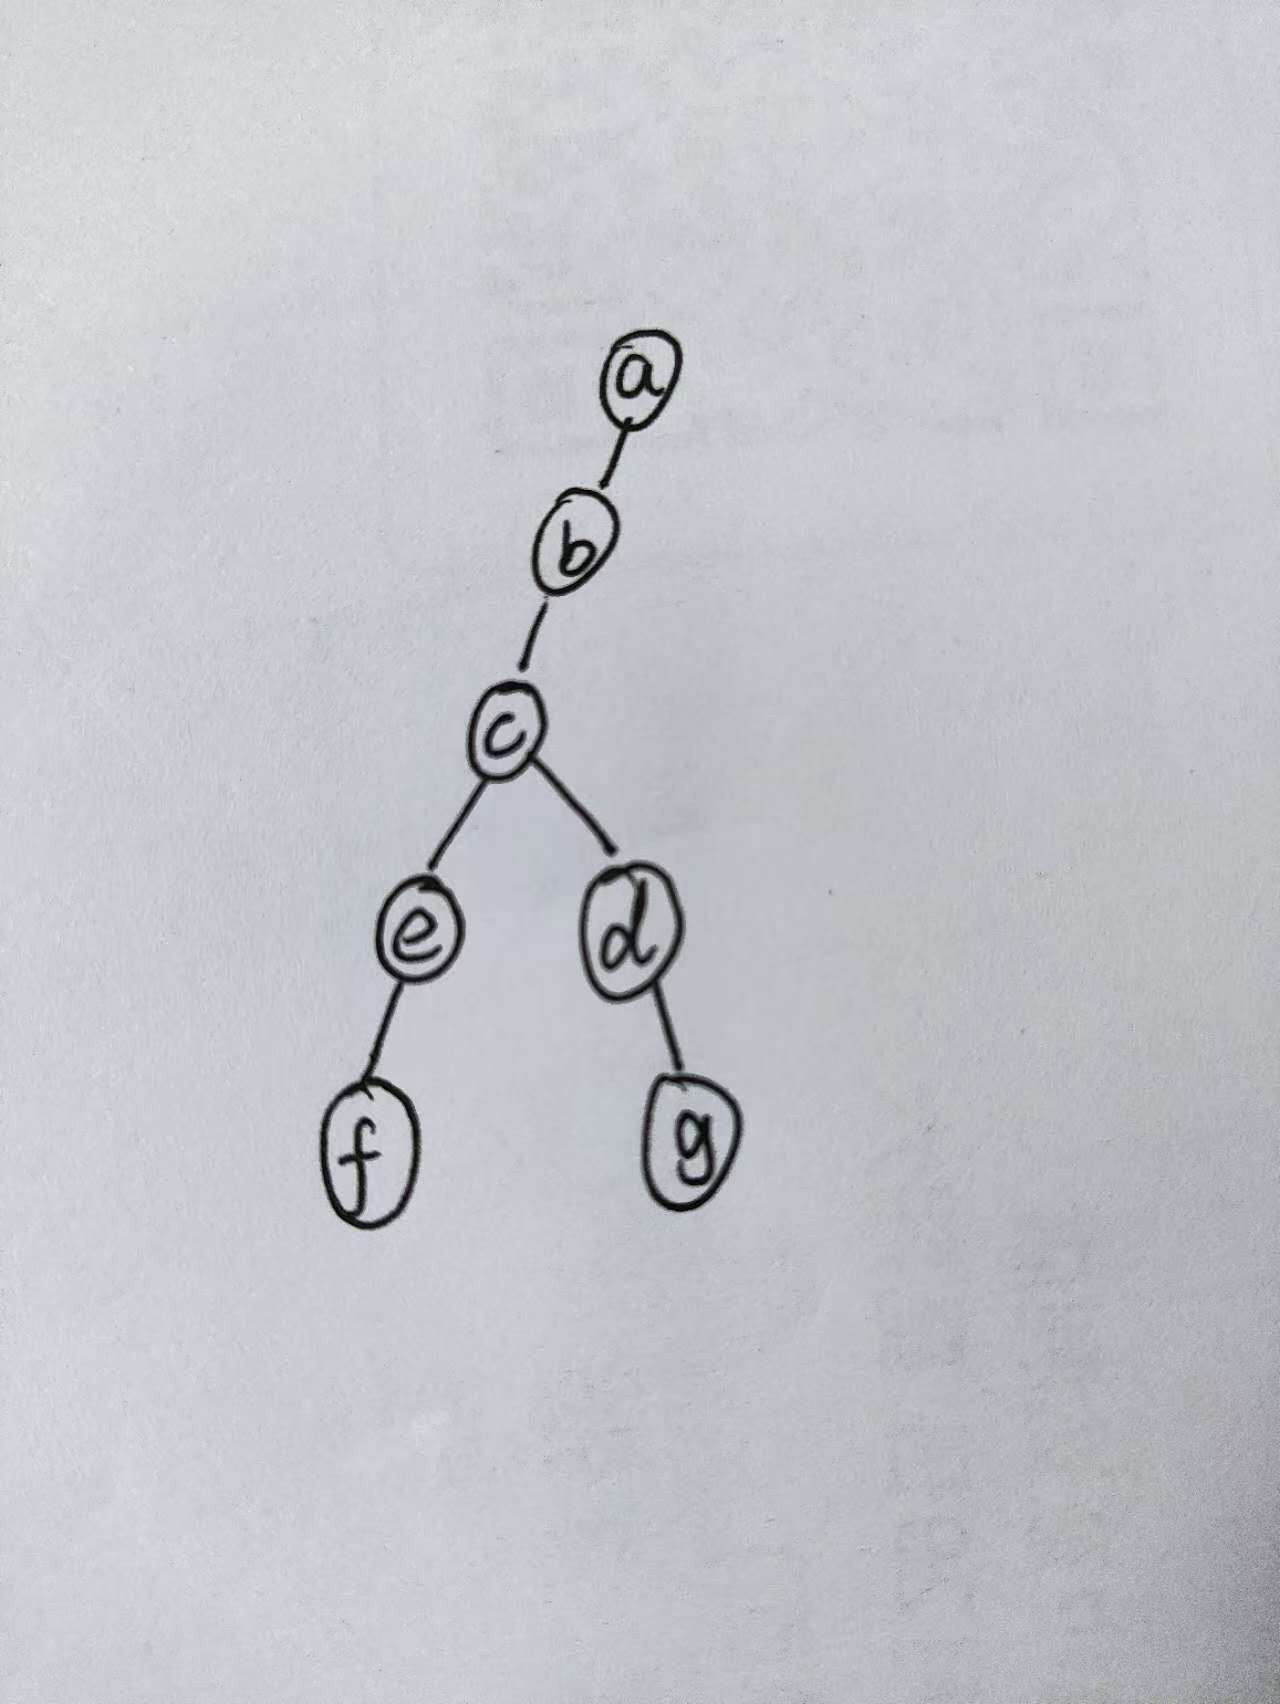 a
b
c
e d
f g